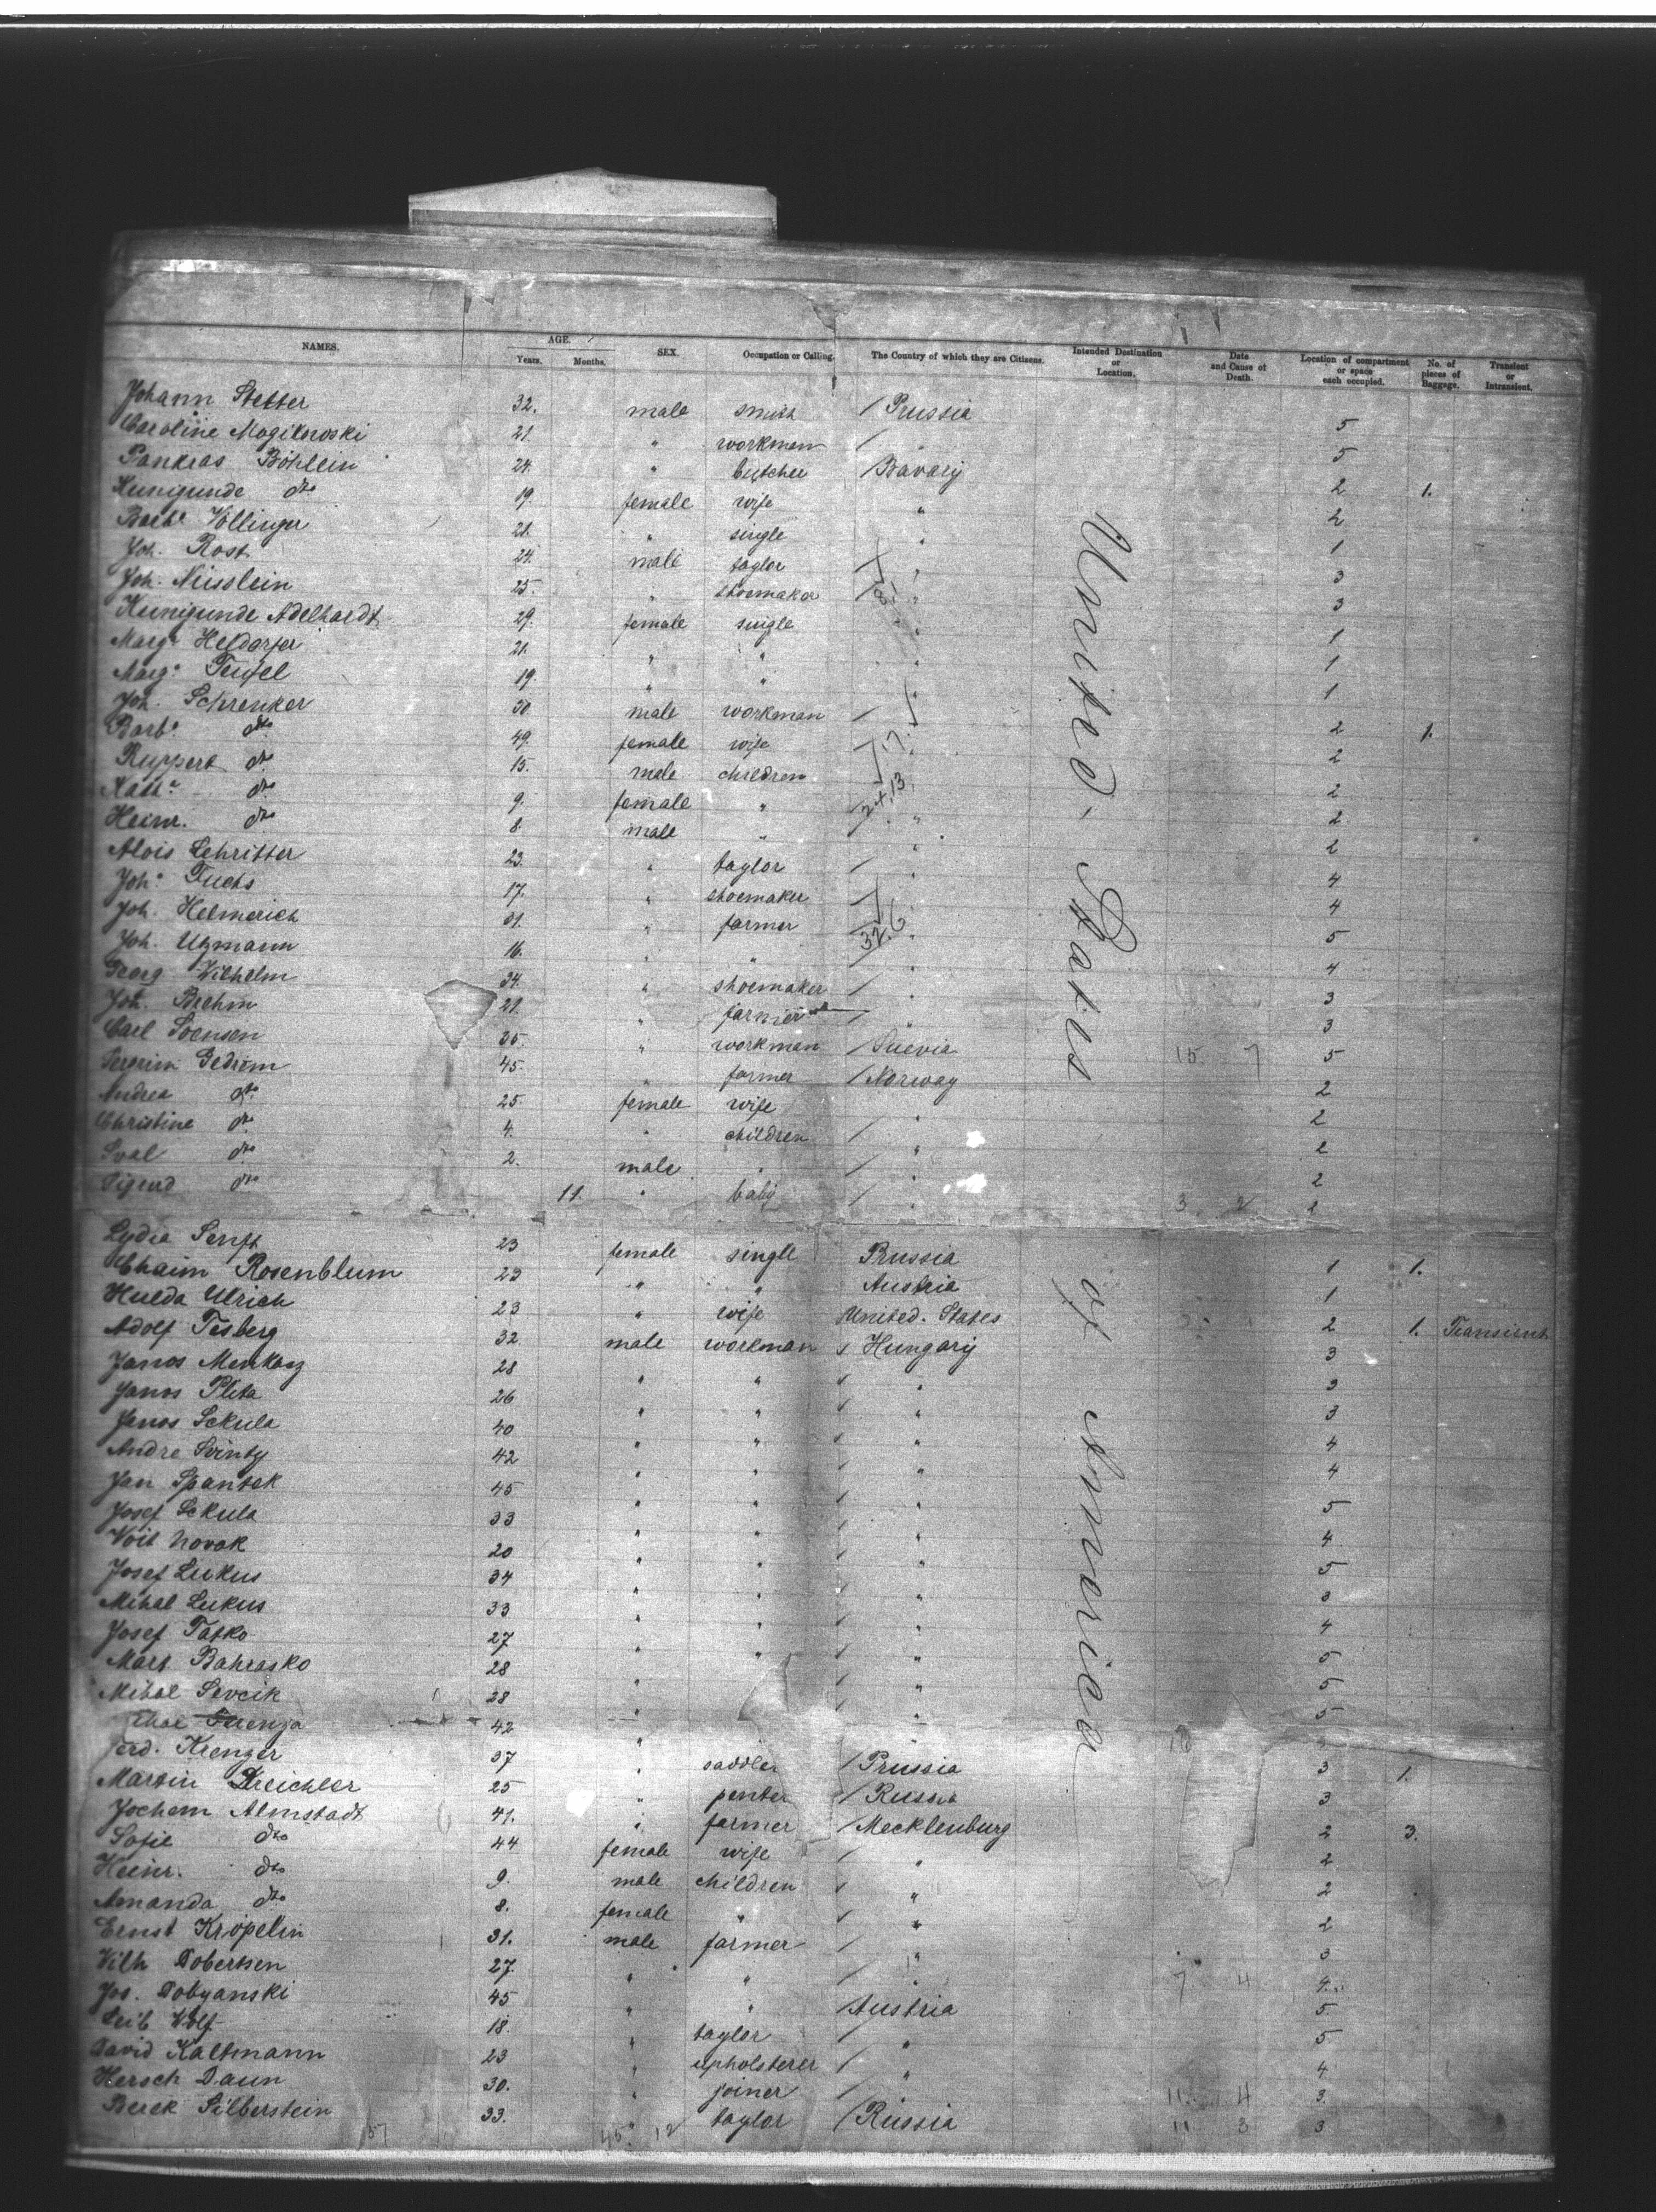 NAMES. AGE. Years. Months. SEX. Occupation or Calling. The Country of which they are Citizens. Intended Destination or Location. Date and Cause of Death. Location of compartment or space each occupied. No. of pieces of Baggage. Transient or Intransient.
United States of America
Johann Stetter 32. male smith / Prussia 5
Caroline Mogilowski 21. " workman / " 5
Pankras Böhlein 24. " butcher / Bavary 2 1.
Kunigunde dto 19. female wife " 2
Barba Vollinger 21. " single " 1
Joh. Rost 24. male taylor / " 3
Joh. Nüsslein 25. " shoemaker / " 3
Kunigunde Adelhardt 29. female single " 1
Marga Heldorfer 21. " " " 1
Marga Teufel 19. " " " 1
Joh. Schrenker 50. male workman / " 2 1.
Barba dto 49. female wife " 2
Ruppert dto 15. male children " 2
Katha dto 9. female " " 2
Heinr. dto 8. male " " 2
Alois Lehritter 23. " taylor / " 4
Joh. Fuchs 17. " shoemaker / " 4
Joh. Helmerich 31. " farmer / " 5
Joh. Uzmann 16. " " / " 4
Georg Wilhelm 34. " shoemaker / " 3
Joh. Brehm 21. " farmer / " 3
Carl Svensen 25. " workman / Suevia 15 7 5
Gedrem 45. " farmer / Norway 2
Andrea dto 25. female wife " 2
Christine dto 4. " children / " 2
Sval dto 2. male " / " 2
Sigurd dto 11. " baby / " 3 2 2
Lydia Senft 23 female single Prussia 1 1.
Chaim Rosenblum 23 " " Austria 1
Hulda Ulrich 23 " wife United. States 2 1. Transient
Adolf Tesberg 32 male workman / Hungary 3
Janos Menkasz 28 " " " 3
Janos Pleta 26 " " " 3
Janos Sekula 40 " " " 4
Andre Svinty 42 " " " 4
Jan Spantek 45 " " " 5
Josef Sekula 33 " " " 4
Voit Novak 20 " " " 5
Josef Lukus 34 " " " 3
Mihal Lukus 33 " " " 4
Josef Tatko 27 " " " 5
Mart. Bahrasko 28 " " 5
Mihal Sevcik 28 " " 5
42 "
Ferd. Krenzer 37 " saddler / Prussia 3 1.
Martin Dreichler 25 " / Russia 3
Jochem Almstadt 41. " farmer / Mecklenburg 2 3.
Sofie dto 44 female wife / " 2
Heinr. dto 9. male children " 2
Amanda dto 8. female " " 2
Ernst Kröpelin 31. male farmer / " 3
Wilh Dobertsen 27. " " / " 7 4 4.
Jos. Dobyanski 45 " " / Austria 5
Leib Wolf 18. " taylor / " 5
David Kaltmann 23 " upholsterer / " 4
Hersch Daun 30. " joiner / " 11 4 3.
Berek Silberstein 33. " taylor / Russia 11 3 3